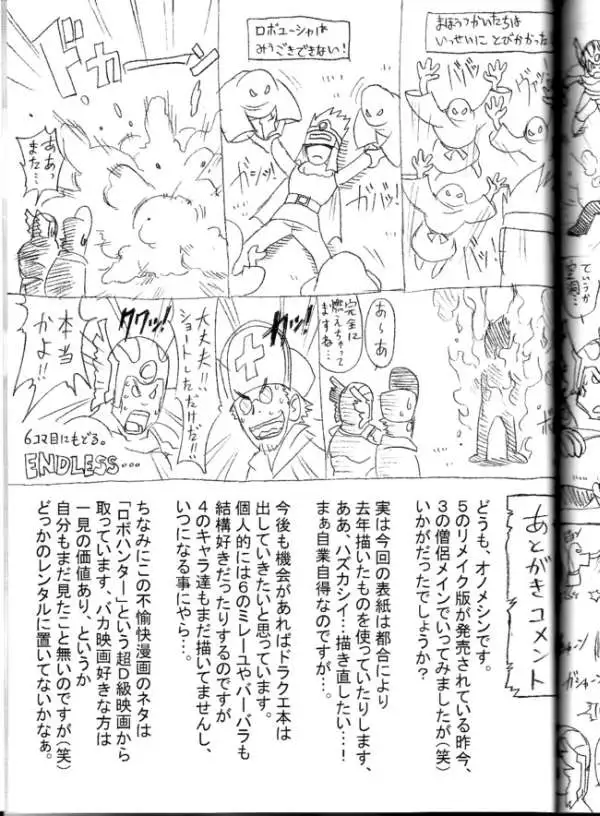 まほうつかいたちは
いっせいに とびかかった!
ロボユーシャは
みうごきできない!
ガバッ!
ガバッ!
ドカーン
ああっ
また…
ていうか
あ〜あ
完全に
燃えちゃって
ますね…
大丈夫!!
ショートしただけだ!!
クワッ!
クワッ!
本当
かよ!!
6コマ目にもどる。
ENDLESS…
あとがきコメント
どうも、オノメシンです。
5のリメイク版が発売されている昨今、
3の僧侶メインでいってみましたが(笑)
いかがだったでしょうか?
実は今回の表紙は都合により
去年描いたものを使っていたりします、
ああ、ハズカシイ…描き直したい…!
まぁ自業自得なのですが…。
今後も機会があればドラクエ本は
出していきたいと思っています。
個人的には6のミレーユや、バーバラも
結構好きだったりするのですが
4のキャラ達もまだ描いてませんし、
いつになる事にやら…。
ちなみにこの不愉快漫画のネタは
「ロボハンター」という超D級映画から
取っています、バカ映画好きな方は
一見の価値あり、というか
自分もまだ見たこと無いのですが(笑)
どっかのレンタルに置いてないかなぁ。